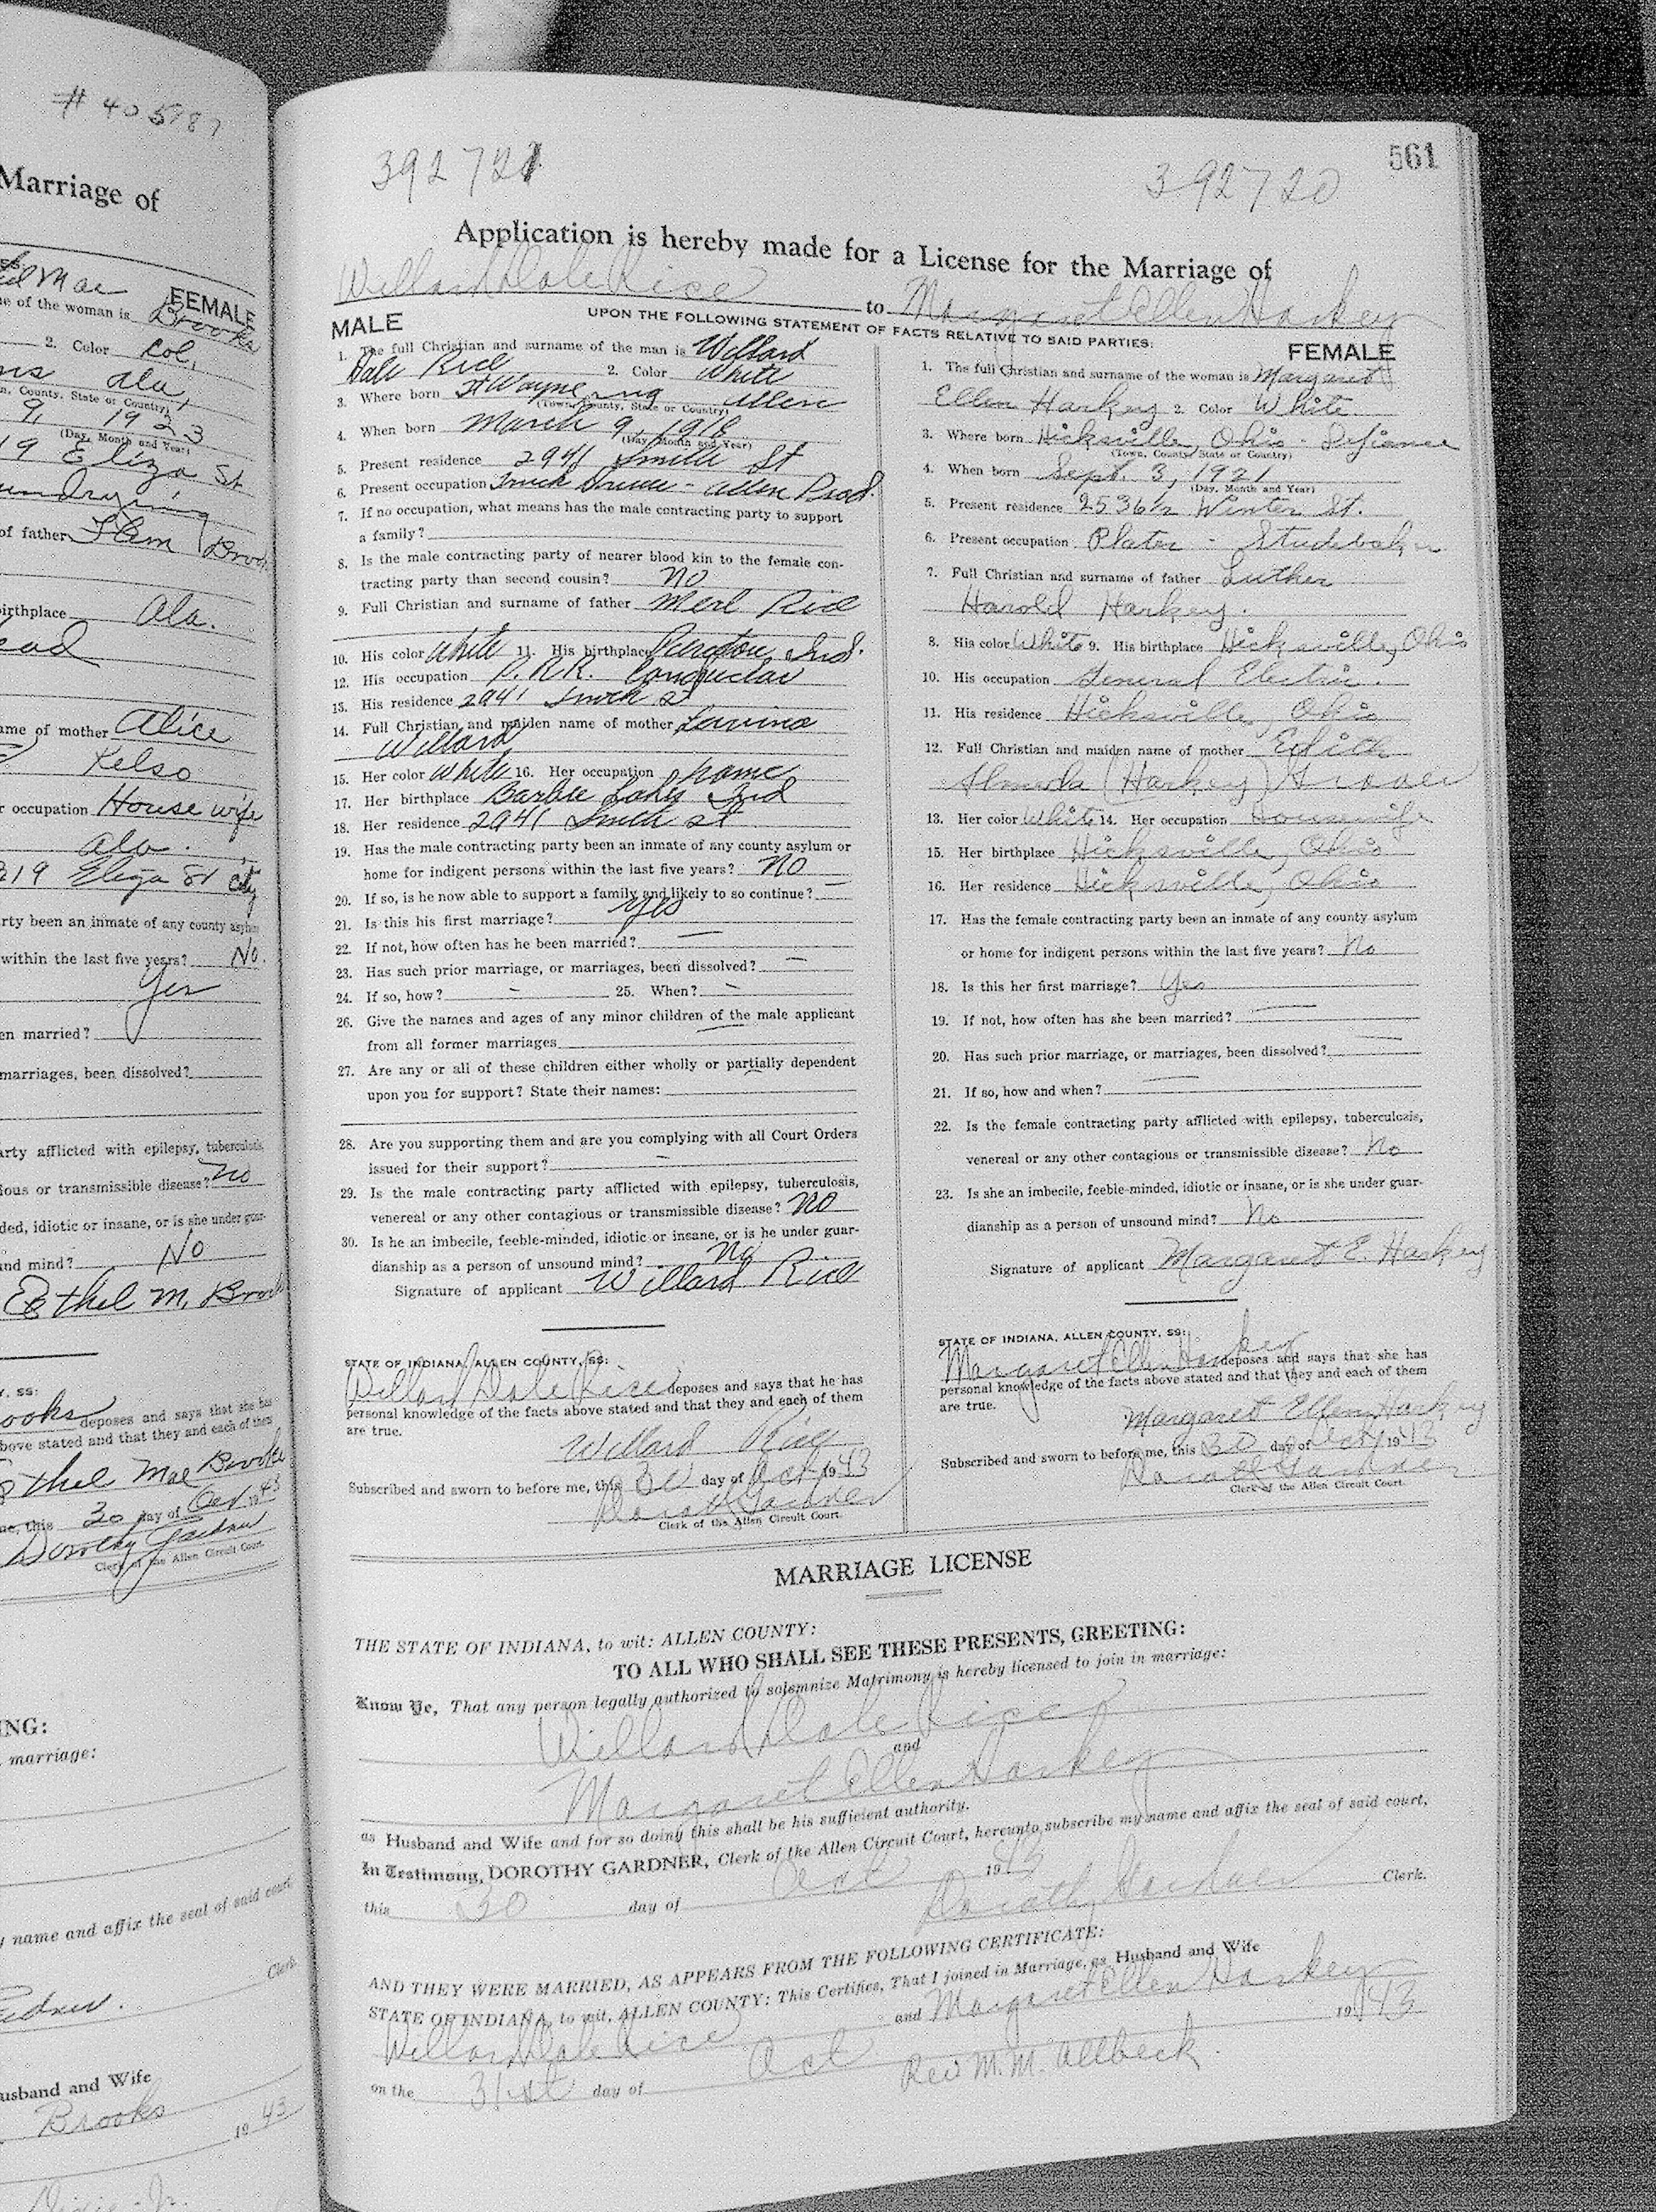 # 405787
Marriage of
Mae
FEMALE
ne of the woman is Brooks
2. Color Col.
Ala,
n, County, State or Country)
9, 1923
(Day, Month and Year)
19 Eliza St
of father
birthplace Ala.
ame of mother Alice
Kelso
r occupation House wife
Ala.
219 Eliza St City
rty been an inmate of any county asylum
within the last five years? No.
Yes
en married?
marriages, been dissolved?
arty afflicted with epilepsy, tuberculosis,
ious or transmissible disease? No
ded, idiotic or insane, or is she under guar-
and mind? No
Ethel M. Brooks
Y, SS:
ooks deposes and says that she has
bove stated and that they and each of them
Ethel Mae Brooks
me, this 30 day of Oct 1943
Dorothy Gardner
Clerk of the Allen Circuit Court.
NG:
marriage:
y name and affix the seal of said court
Clerk.
usband and Wife
Brooks
1943
561
392721
392720
Application is hereby made for a License for the Marriage of
Willard Dale Rice to Margaret Ellen Harkey
UPON THE FOLLOWING STATEMENT OF FACTS RELATIVE TO SAID PARTIES:
MALE
1. The full Christian and surname of the man is Willard
Dale Rice 2. Color White
3. Where born Ft Wayne Ing Allen
(Town, County, State or Country)
4. When born March 9, 1918
(Day, Month and Year)
5. Present residence 2941 Smith St
6. Present occupation Truck Driver - Allen Prod.
7. If no occupation, what means has the male contracting party to support
a family?
8. Is the male contracting party of nearer blood kin to the female con-
tracting party than second cousin? No
9. Full Christian and surname of father Merl Rice
10. His color White 11. His birthplace Ind.
12. His occupation P.R.R. Conductor
13. His residence 2941 Smith St
14. Full Christian and maiden name of mother Lavina
Willard
15. Her color White 16. Her occupation home
17. Her birthplace Barbee Lakes Ind
18. Her residence 2941 Smith St
19. Has the male contracting party been an inmate of any county asylum or
home for indigent persons within the last five years? No
20. If so, is he now able to support a family and likely to so continue? —
21. Is this his first marriage? Yes
22. If not, how often has he been married? —
23. Has such prior marriage, or marriages, been dissolved? —
24. If so, how? - 25. When? -
26. Give the names and ages of any minor children of the male applicant
from all former marriages —
27. Are any or all of these children either wholly or partially dependent
upon you for support? State their names: —
28. Are you supporting them and are you complying with all Court Orders
issued for their support? —
29. Is the male contracting party afflicted with epilepsy, tuberculosis,
venereal or any other contagious or transmissible disease? No
30. Is he an imbecile, feeble-minded, idiotic or insane, or is he under guar-
dianship as a person of unsound mind? No
Signature of applicant Willard Rice
STATE OF INDIANA, ALLEN COUNTY, SS:
Willard Dale Rice deposes and says that he has
personal knowledge of the facts above stated and that they and each of them
are true.
Willard Rice
Subscribed and sworn to before me, this 30 day of Oct 1943
Dorothy Gardner
Clerk of the Allen Circuit Court.
FEMALE
1. The full Christian and surname of the woman is Margaret
Ellen Harkey 2. Color White
3. Where born Hicksville, Ohio - Defiance
(Town, County, State or Country)
4. When born Sept. 3, 1921
(Day, Month and Year)
5. Present residence 2536 1/2 Winter St.
6. Present occupation Plater - Studebaker
7. Full Christian and surname of father Luther
Harold Harkey.
8. His color White 9. His birthplace Hicksville, Ohio
10. His occupation General Electric.
11. His residence Hicksville, Ohio
12. Full Christian and maiden name of mother Edith
Almeda (Harkey) Grover
13. Her color White 14. Her occupation Housewife
15. Her birthplace Hicksville, Ohio
16. Her residence Hicksville, Ohio
17. Has the female contracting party been an inmate of any county asylum
or home for indigent persons within the last five years? No
18. Is this her first marriage? Yes
19. If not, how often has she been married? —
20. Has such prior marriage, or marriages, been dissolved? —
21. If so, how and when? —
22. Is the female contracting party afflicted with epilepsy, tuberculosis,
venereal or any other contagious or transmissible disease? No
23. Is she an imbecile, feeble-minded, idiotic or insane, or is she under guar-
dianship as a person of unsound mind? No
Signature of applicant Margaret E. Harkey
STATE OF INDIANA, ALLEN COUNTY, SS:
Margaret Ellen Harkey deposes and says that she has
personal knowledge of the facts above stated and that they and each of them
are true.
Margaret Ellen Harkey
Subscribed and sworn to before me, this 30 day of Oct 1943
Dorothy Gardner
Clerk of the Allen Circuit Court.
MARRIAGE LICENSE
THE STATE OF INDIANA, to wit: ALLEN COUNTY:
TO ALL WHO SHALL SEE THESE PRESENTS, GREETING:
Know Ye, That any person legally authorized to solemnize Matrimony is hereby licensed to join in marriage:
Willard Dale Rice
and
Margaret Ellen Harkey
as Husband and Wife and for so doing this shall be his sufficient authority.
In Testimony, DOROTHY GARDNER, Clerk of the Allen Circuit Court, hereunto subscribe my name and affix the seal of said court,
this 30 day of Oct 1943
Dorothy Gardner Clerk.
AND THEY WERE MARRIED, AS APPEARS FROM THE FOLLOWING CERTIFICATE:
STATE OF INDIANA, to wit, ALLEN COUNTY: This Certifies, That I joined in Marriage, as Husband and Wife
Willard Dale Rice and Margaret Ellen Harkey
on the 31st day of Oct 1943
Rev M. M. Allbeck.